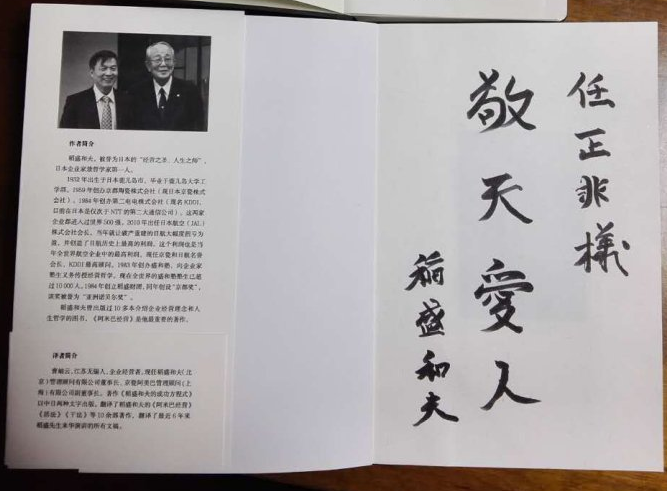 作者简介
稻盛和夫，被誉为日本的“经营之圣、人生之师”，
日本企业家兼哲学家第一人。
1932年出生于日本鹿儿岛市，毕业于鹿儿岛大学工
学部。1959年创办京都陶瓷株式会社（现日本京瓷株式
会社）。1984年创办第二电电株式会社（现名KDDI，
以前在日本是仅次于NTT的第二大通信公司）。这两家
企业都进入过世界500强。2010年出任日本航空（JAL）
株式会社会长，当年就让破产重建的日航大幅度扭亏为
盈，并创造了日航历史上最高的利润。这个利润也是当
年全世界航空企业中的最高利润。现任京瓷和日航名誉
会长、KDDI最高顾问。1983年创办盛和塾，向企业家
塾生义务传授经营哲学，现在全世界的盛和塾塾生已超
过10000人。1984年创立稻盛财团，同年创设“京都奖”，
该奖被誉为“亚洲诺贝尔奖”。
稻盛和夫曾出版过10多本介绍企业经营理念和人
生哲学的图书，《阿米巴经营》是他最重要的著作。
译者简介
曹岫云，江苏无锡人，企业经营者，现任稻盛和夫（北
京）管理顾问有限公司董事长、京瓷阿美巴管理顾问（上
海）有限公司副董事长。著作《稻盛和夫的成功方程式》
以中日两种文字出版，翻译了稻盛和夫的《阿米巴经营》
《活法》《干法》等10余部著作，翻译了最近6年来
稻盛先生来华演讲的所有文稿。
任正非樣
敬天愛人
稲盛和夫